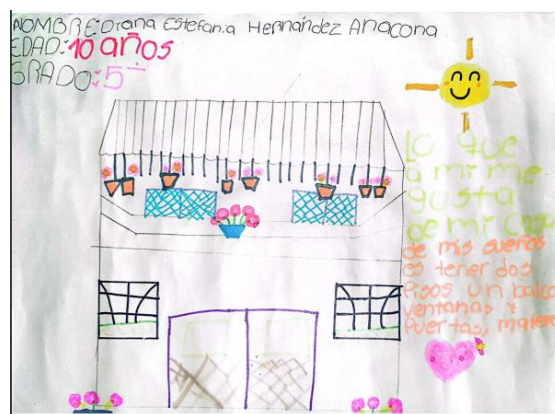 NOMBRE: Diana Estefania Hernández Anacona
EDAD: 10 años
GRADO: 5
Lo que
a mi me
gusta
de mi casa
de mis sueños
es tener dos
Pisos un balco
ventanas y
Puertas, mate